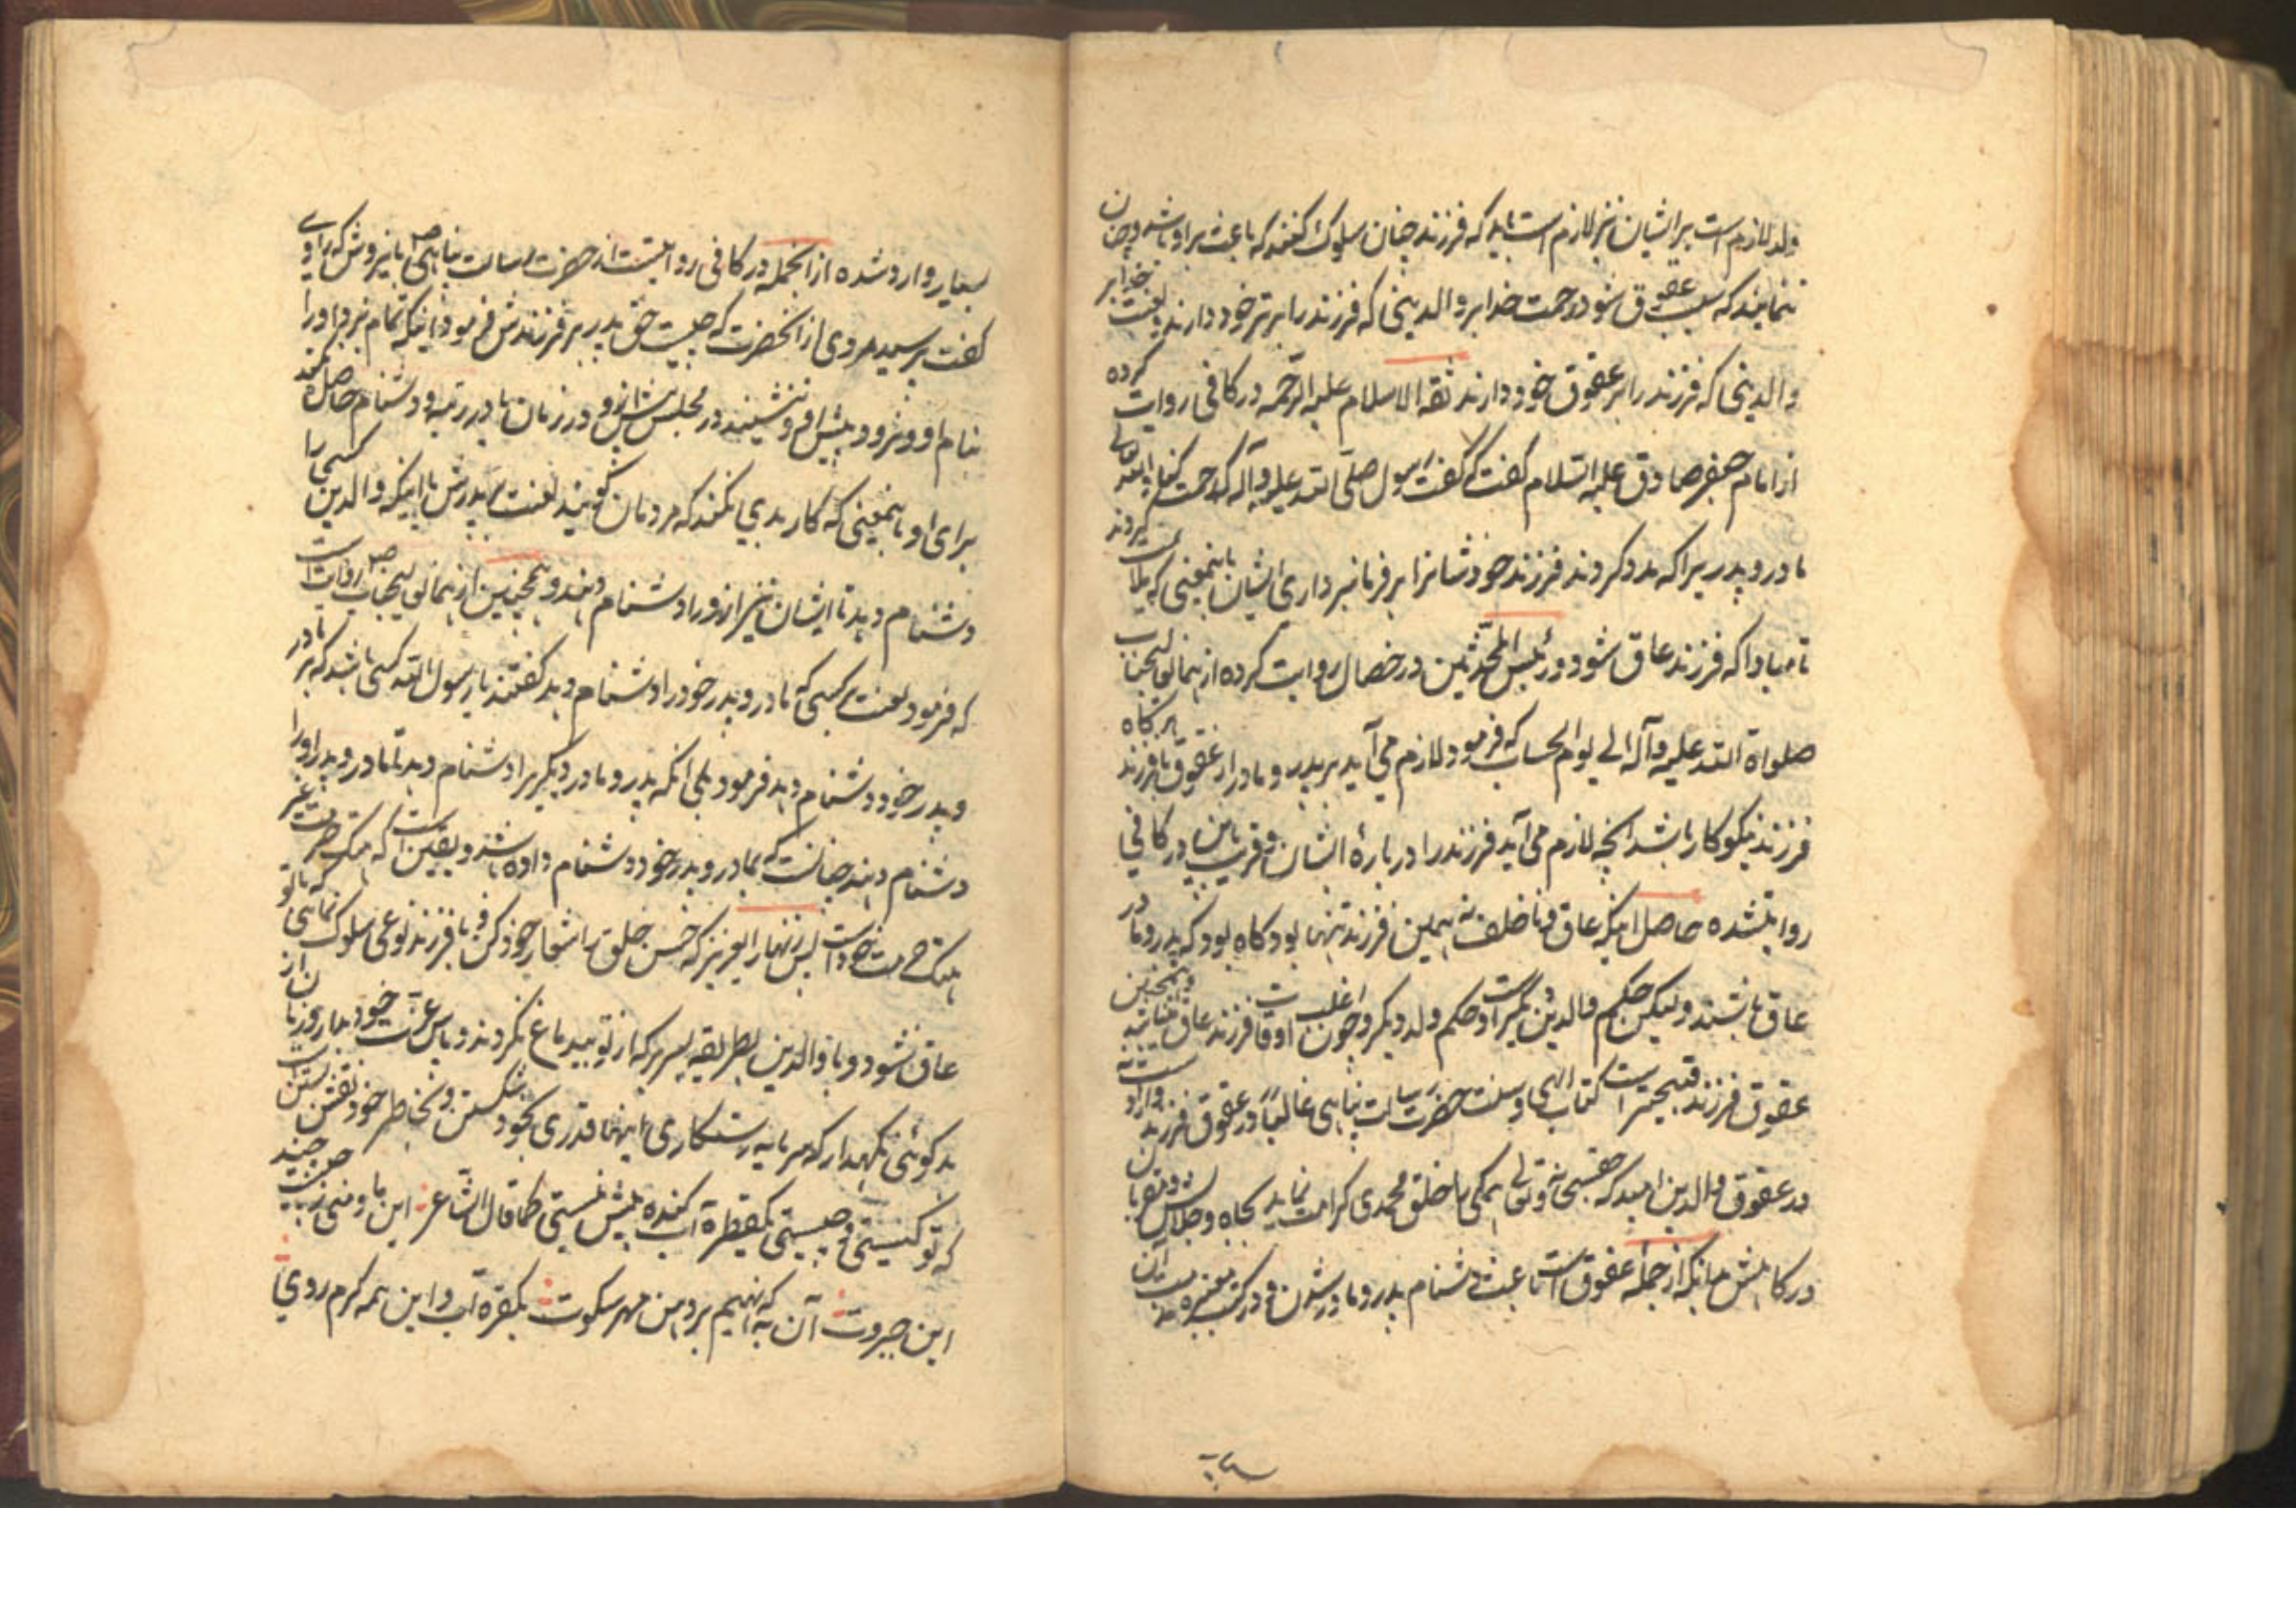 ولد لازم است بر ایشان نیز لازم است باید که فرزند چنان سلوک کنند که باعث بر او باشد و چنان
ننمایند که سبب عقوق شود رحمت خدا بر والدینی که فرزند را بر بر خود دارند و لعنت خدا بر
والدینی که فرزند را بر عقوق خود دارند ثقة الاسلام علیه الرحمه در کافی روایت کرده
از امام جعفر صادق علیه السلام گفت که گفت رسول صلی الله علیه و آله که رحمت کند الله تعالی
مادر و پدریرا که مدد کردند فرزند خود شانرا بر فرمانبرداری ایشان باینمعنی که
تا مبادا که فرزند عاق شود و رئیس المحدثین در خصال روایت کرده از همان عالیجناب
صلواة الله علیه و آله الی یوم الحساب که فرمود لازم می آید بر پدر و مادر از عقوق با فرزند هر گاه
فرزند نیکوکار باشد آنچه لازم می آید فرزند را در بارهٔ ایشان و قریب باین در کافی
روایتشده حاصل اینکه عاق و ناخلف نه همین فرزند تنها بود گاه بود که پدر و مادر
عاق باشند ولیکن حکم والدین دیگر است و حکم ولد دیگر و چون اغلب اوقات فرزند عاق میباشد و همچنین
عقوق فرزند قبیحتر است کتاب الهی و سنت حضرت رسالت پناهی غالباً در عقوق فرزند وارد است نه
در عقوق والدین امید که حقسبحانه و تعالی همگی را خلق محمدی کرامت نماید بجاه و جلال
در گاهش بدانکه از جمله عقوق است باعث دشنام پدر و مادر شدن و در کتب معتبره مذمت آن
بسیار وارد شده از انجمله در کافی روایتست از حضرت رسالت پناهی ص باینروش که راوی
گفت پرسید مردی از آنحضرت که چیست حق پدر بر فرزندش فرمود اینکه نام نبرد او را
بنام او و نرود پیش او و ننشیند در مجلس پیش از او و در زمان مادر رتبه و دشنام حاصل نکند
برای او باینمعنی که کار بدی نکند که مردمان گویند لعنت بر پدرش یا اینکه والدین کسی را
دشنام دهد تا ایشان نیز از او را دشنام دهند و همچنین از همان عالیجناب ص روایت است
که فرمود لعنت بر کسی که مادر و پدر خود را دشنام دهد گفتند یا رسول الله کسی باشد که مادر
و پدر خود دشنام دهد فرمود بلی انکه پدر و مادر دیگریرا دشنام دهد تا مادر و پدر او را
دشنام دهند چنانست که بمادر و پدر خود دشنام داده باشد و یقین است که هتک حرمت غیر
هتک حرمت خود است پس زنهار ایعزیز که حسن خلق را شعار خود کن و با فرزند نوعی سلوک نمای که با تو
عاق نشود و با والدین بطریقه بسر بر که از تو بیدماغ نگردند و پاس عزت خود بدار و زبان از
بد گوئی نگهدار که سرمایه رستگاری اینها قدری بخود شکستن و بخاطر خود نقش بستن است
که تو کیستی و چیستی یکقطره آب گنده بیش نیستی کما قال الشاعر این ما و منی چیست
این جبروت آن به که نهیم بر دهن مهر سکوت یکقطره آب و این همه کرم روی